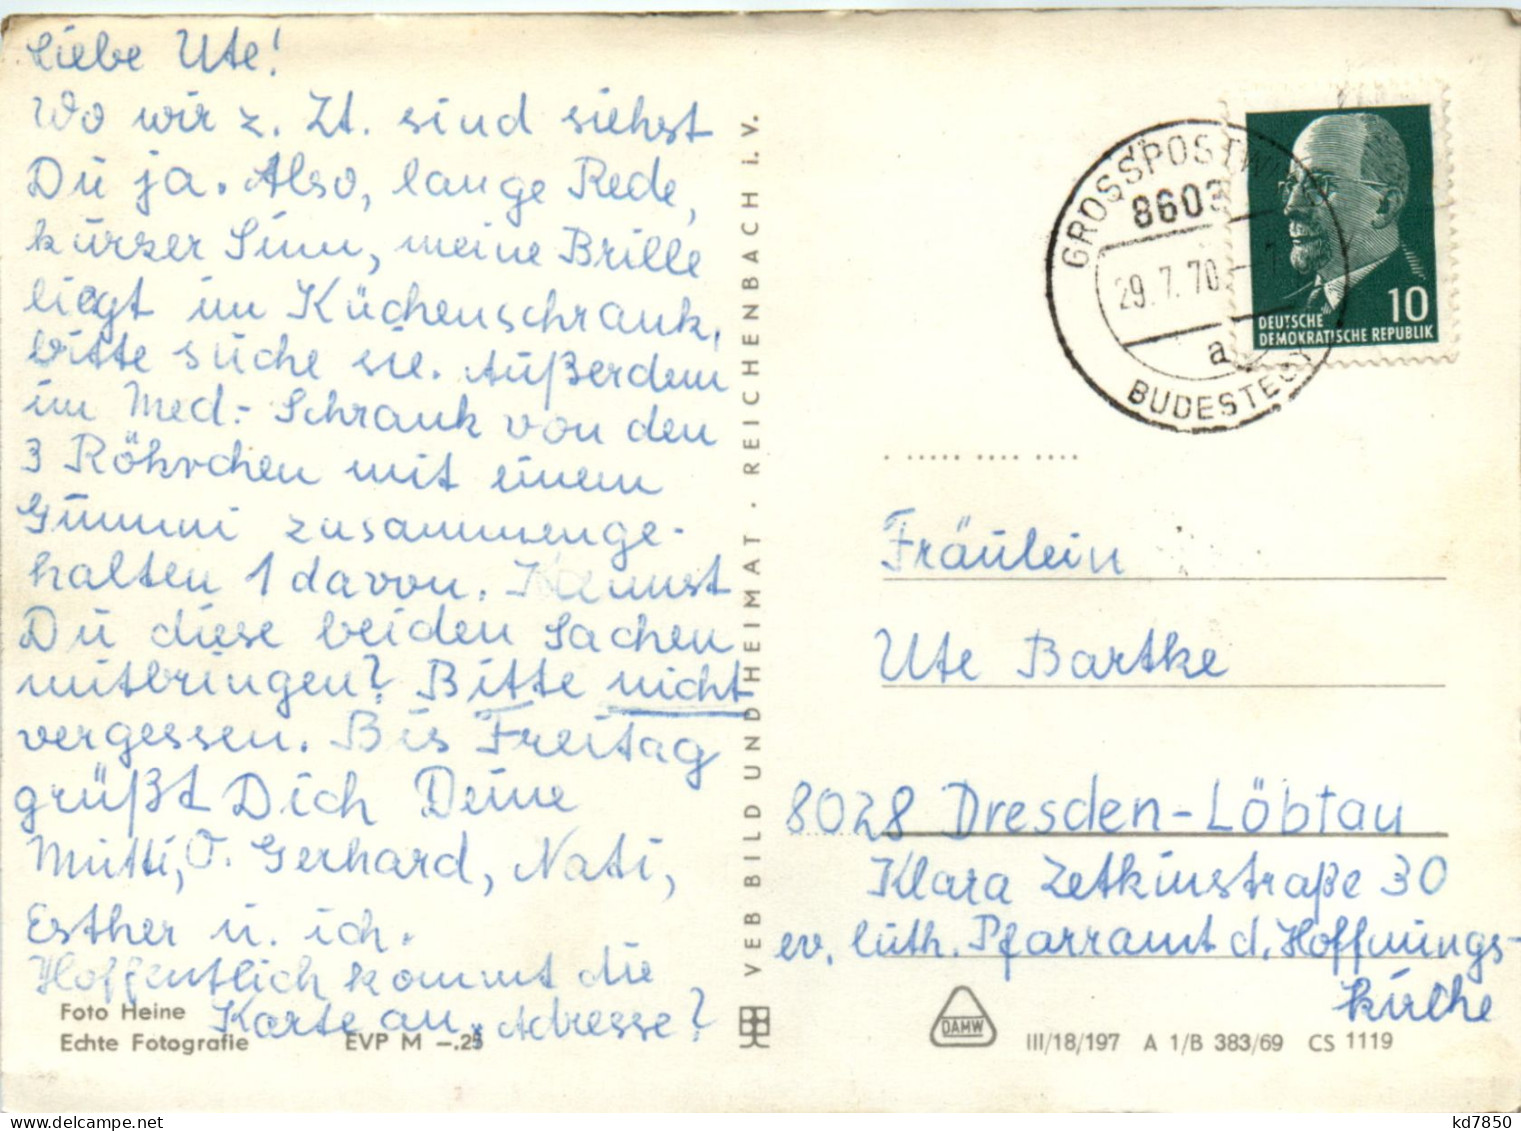 Liebe Ute!
Wo wir z. Zt. sind siehst
Du ja. Also, lange Rede,
kurzer Sinn, meine Brille
liegt im Küchenschrank,
bitte suche sie. Außerdem
im Med.- Schrank von den
3 Röhrchen mit einem
Gummi zusammenge-
halten 1 davon. Kannst
Du diese beiden Sachen
mitbringen? Bitte nicht
vergessen. Bis Freitag
grüßt Dich Deine
Mutti, O. Gerhard, Nati,
Esther u. ich.
Hoffentlich kommt die
Karte an. Adresse?
Foto Heine
Echte Fotografie EVP M –.25
VEB BILD UND HEIMAT · REICHENBACH i. V.
GROSSPOSTWITZ
8603
29.7.70
a
BUDESTECY
10
DEUTSCHE
DEMOKRATISCHE REPUBLIK
Fräulein
Ute Bartke
8028 Dresden-Löbtau
Klara Zetkinstraße 30
ev. luth. Pfarramt d. Hoffnungs-
kirche
DAMW
III/18/197 A 1/B 383/69 CS 1119
kd7850